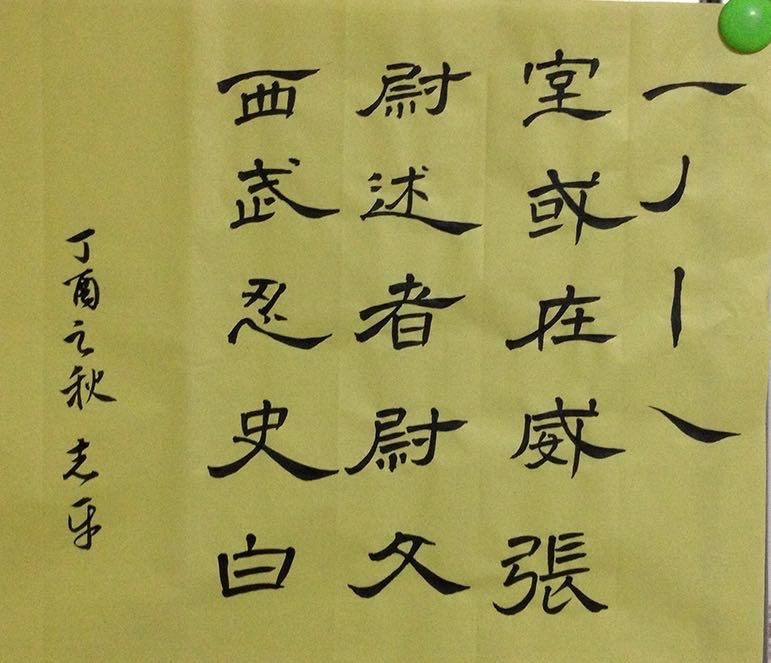 一丿丨㇏
室或在威張
尉述者尉攵
西武忍史白
丁酉之秋 志平